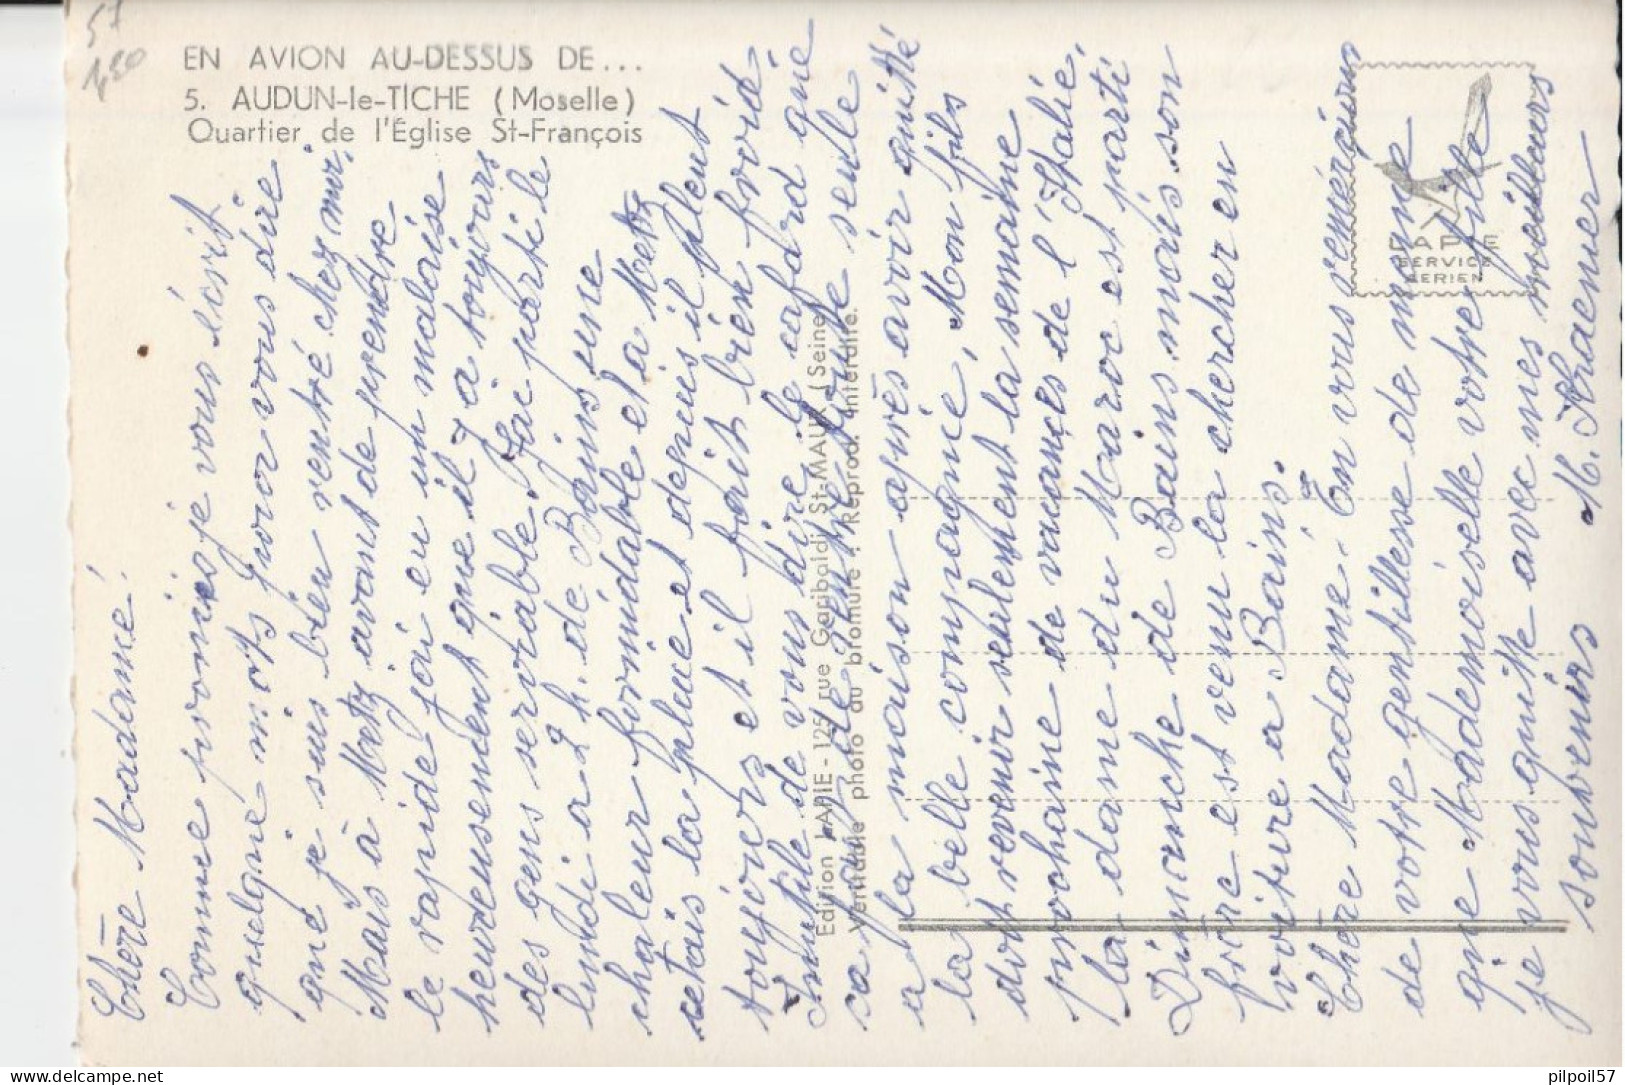 57
430
EN AVION AU-DESSUS DE...
5. AUDUN-le-TICHE (Moselle)
Quartier de l'Église St-François
Chère Madame!
Comme promis je vous écrit
quelque mots pour vous dire
que je suis bien rentré chez moi,
Mais à Metz avant de prendre
le rapide j'ai eu un malaise
heureusement que il y a toujours
des gens serviable. J'ai parti le
lundi a 2 h. de Bains une
chaleur formidable et a Metz
cetais la pluie et depuis il pleut
toujours et il fait bien froid.
Inutile de vous dire le cafard que
sa peu être toute seule
a la maison après avoir quitté
la belle compagnie, Mon fils
doit revenir seulement la semaine
prochaine de vacances de l'Italie,
La dame du Maroc est parti
Dimanche de Bains mais son
frère est venu la chercher en
voiture a Bains.
Chère Madame. En vous remerçiant
de votre gentillesse de même
que Mademoiselle votre fille
je vous quitte avec mes meilleurs
souvenirs M. Kraemer
Edition LAPIE - 125, rue Garibaldi, St-MAUR (Seine)
Véritable photo au bromure : Reprod. Interdite.
LAPIE
SERVICE
AERIEN
pilpoil57